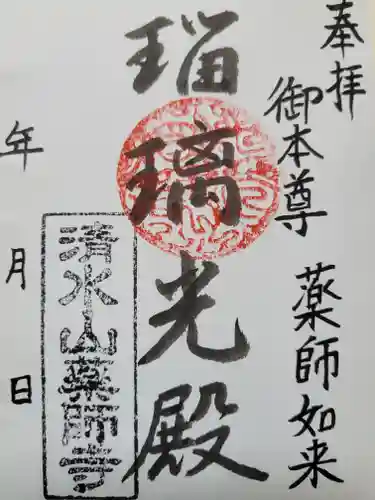 奉拝
御本尊 薬師如来
瑠璃光殿
年 月 日
清水山薬師寺